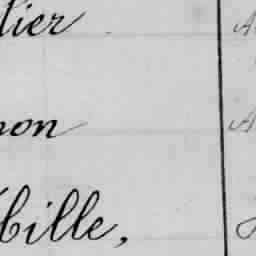 lier
non
bille,